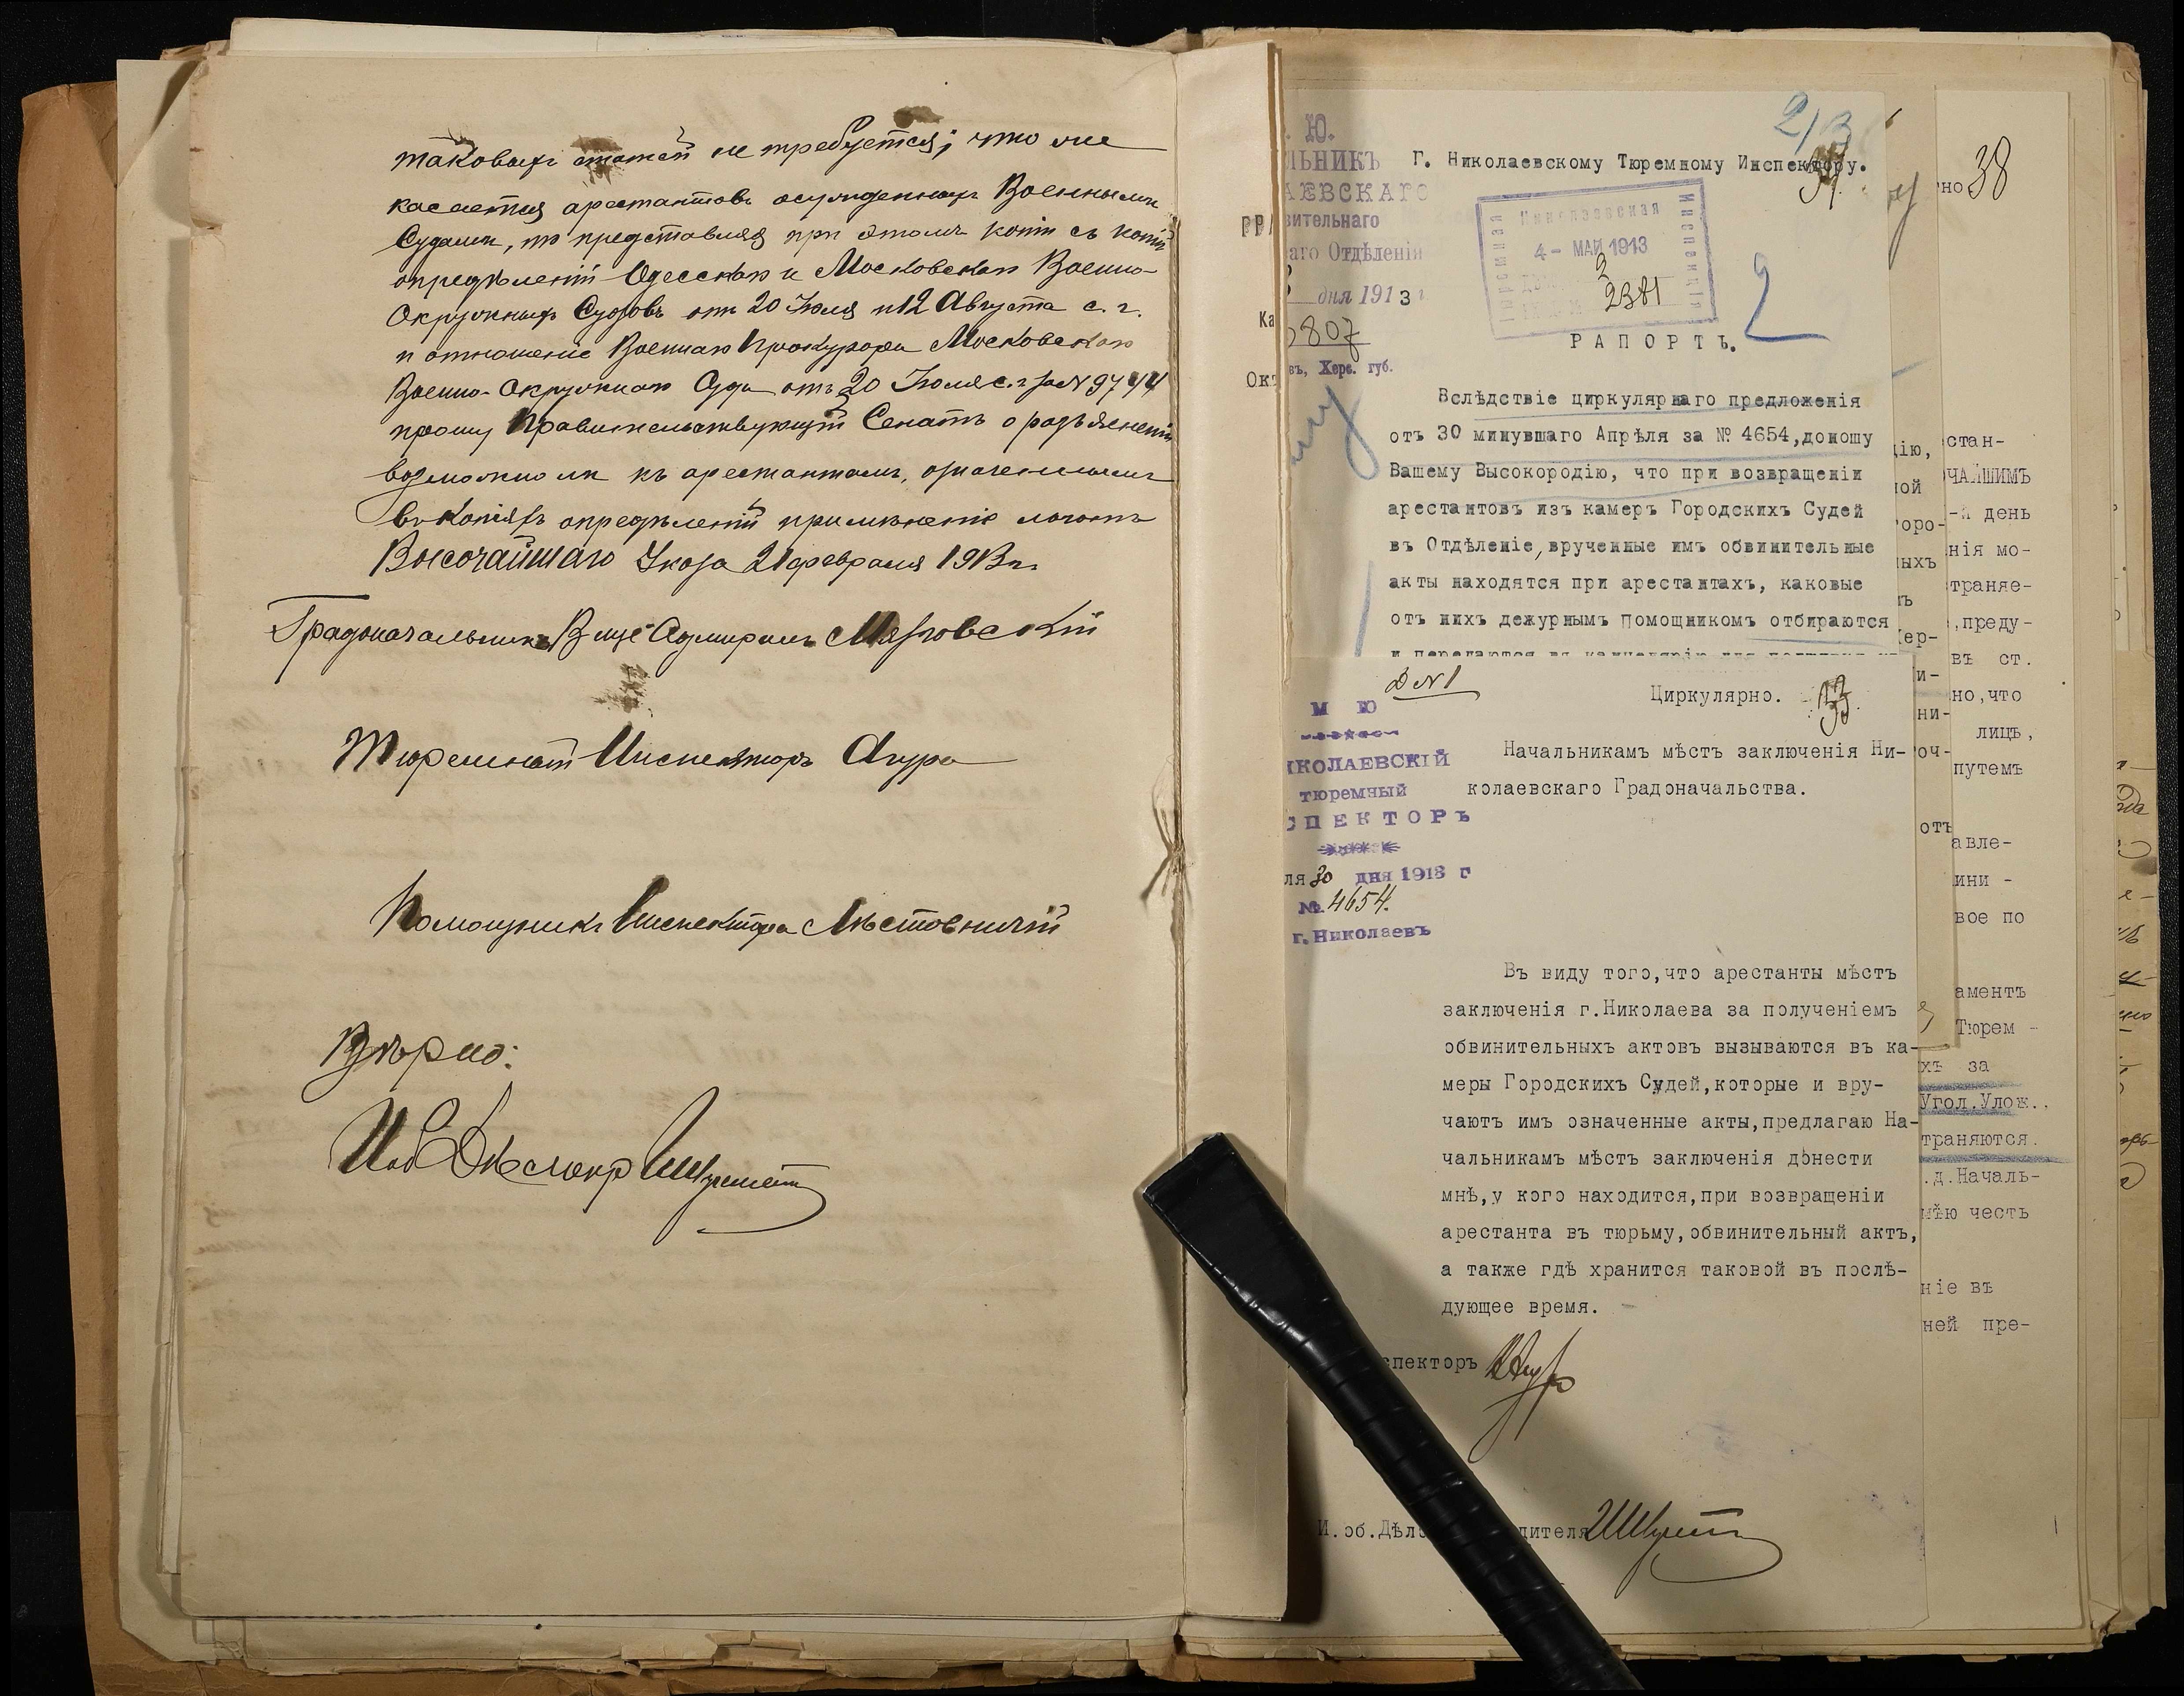 таковыхъ статей не требуется; что же
касается арестантовъ осужденныхъ Военными
Судами, то представляя при этомъ копіи съ копій
опредѣленій Одесскаго и Московскаго Военно-
Окружныхъ Судовъ отъ 20 Іюля и 12 Августа с. г.
и отношеніе Военнаго Прокурора Московскаго
Военно-Окружнаго Суда отъ 20 Іюля с. г. за № 9744
прошу Правительствующій Сенатъ о разъясненіи
возможно ли къ арестантамъ, означеннымъ
въ копіяхъ опредѣленій примѣненіе милости
Высочайшаго Указа 21 февраля 1913 г.
Градоначальникъ Вице Адмиралъ Мязговскій
Тюремный Инспекторъ Ачура
Помощникъ Инспектора Мѣстовничій
Вѣрно:
38
но
2/3
. Ю.
ЛЬНИКЪ
АЕВСКАГО
вительнаго
аго Отдѣленія
дня 1913 г
5807
въ, Херс. губ.
Г. Николаевскому Тюремному Инспектору.
Николаевская
Тюремная
Инспекція
4- МАЙ 1913
2381
2
РАПОРТЪ.
Вслѣдствіе циркулярнаго предложенія
отъ 30 минувшаго Апрѣля за № 4654, доношу
Вашему Высокородію, что при возвращеніи
арестантовъ изъ камеръ Городскихъ Судей
въ Отдѣленіе, врученные имъ обвинительные
акты находятся при арестантахъ, каковые
отъ нихъ дежурнымъ Помощникомъ отбираются
Д №1
Циркулярно.
М Ю
ИКОЛАЕВСКІЙ
тюремный
СПЕКТОРЪ
ля 30 дня 1913 г
№ 4654.
г. Николаевъ
Начальникамъ мѣстъ заключенія Ни-
колаевскаго Градоначальства.
Въ виду того, что арестанты мѣстъ
заключенія г. Николаева за полученіемъ
обвинительныхъ актовъ вызываются въ ка-
меры Городскихъ Судей, которые и вру-
чаютъ имъ означенные акты, предлагаю На-
чальникамъ мѣстъ заключенія донести
мнѣ, у кого находится, при возвращеніи
арестанта въ тюрьму, обвинительный актъ,
а также гдѣ хранится таковой въ послѣ-
дующее время.
спекторъ
И. об. Дѣло
дителя
стан-
ЧАЙШИМЪ
-й день
нія мо-
траняе-
,преду-
въ ст.
но, что
лицъ,
путемъ
авле-
ини -
вое по
аментъ
Тюрем -
хъ за
Угол. Улож..
траняются.
.д. Началь-
мѣю честь
ніе въ
ней пре-